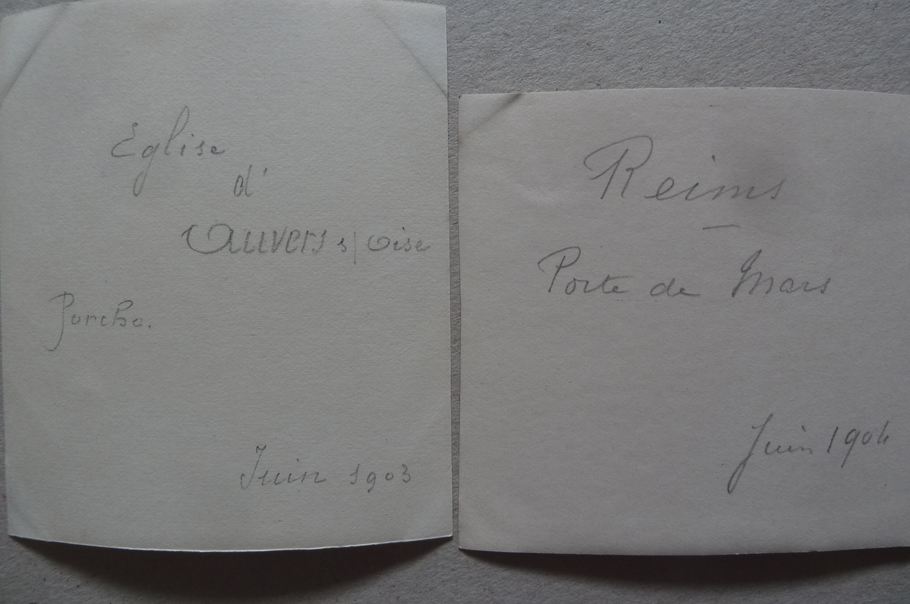 Eglise
d'
Auvers s/ Oise
Porche.
Juin 1903
Reims
Porte de Mars
Juin 1904